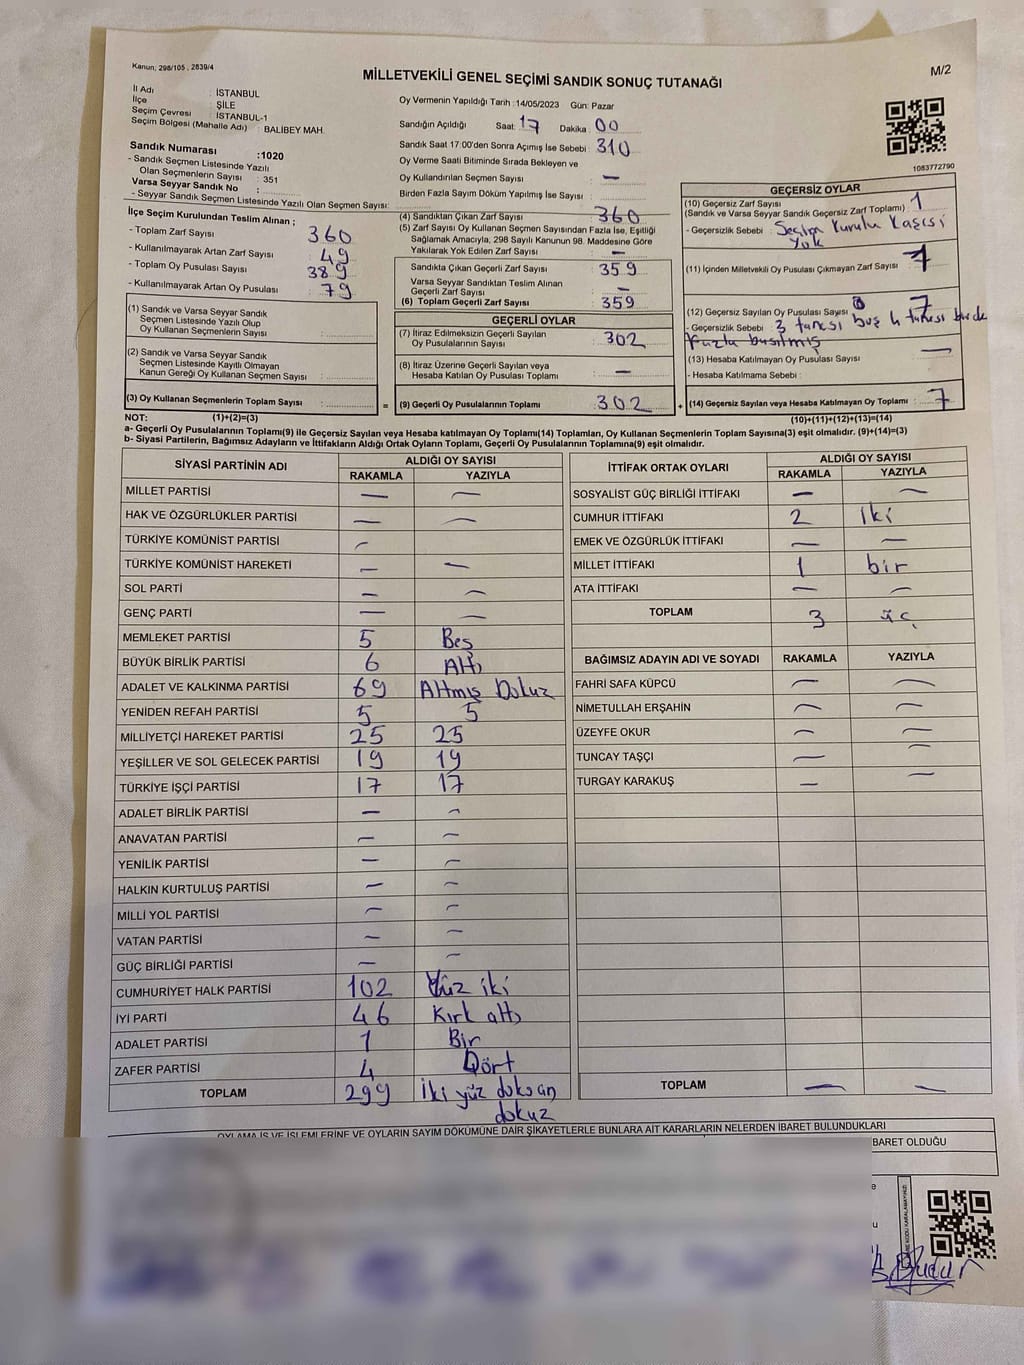 Kanun; 298/105 , 2839/4
MİLLETVEKİLİ GENEL SEÇİMİ SANDIK SONUÇ TUTANAĞI
M/2
İl Adı : İSTANBUL
İlçe : ŞİLE
Seçim Çevresi : İSTANBUL-1
Seçim Bölgesi (Mahalle Adı) : BALİBEY MAH.
Sandık Numarası :1020
- Sandık Seçmen Listesinde Yazılı
Olan Seçmenlerin Sayısı : 351
Varsa Seyyar Sandık No :
- Seyyar Sandık Seçmen Listesinde Yazılı Olan Seçmen Sayısı:
Oy Vermenin Yapıldığı Tarih :14/05/2023 Gün: Pazar
Sandığın Açıldığı Saat: 17 Dakika : 00
Sandık Saat 17:00'den Sonra Açılmış İse Sebebi : 310
Oy Verme Saati Bitiminde Sırada Bekleyen ve
Oy Kullandırılan Seçmen Sayısı : —
Birden Fazla Sayım Döküm Yapılmış İse Sayısı :
1083772790
İlçe Seçim Kurulundan Teslim Alınan ;
- Toplam Zarf Sayısı : 360
- Kullanılmayarak Artan Zarf Sayısı : 49
- Toplam Oy Pusulası Sayısı : 389
- Kullanılmayarak Artan Oy Pusulası : 79
(1) Sandık ve Varsa Seyyar Sandık
Seçmen Listesinde Yazılı Olup
Oy Kullanan Seçmenlerin Sayısı :
(2) Sandık ve Varsa Seyyar Sandık
Seçmen Listesinde Kayıtlı Olmayan
Kanun Gereği Oy Kullanan Seçmen Sayısı :
(3) Oy Kullanan Seçmenlerin Toplam Sayısı :
(4) Sandıktan Çıkan Zarf Sayısı : 360
(5) Zarf Sayısı Oy Kullanan Seçmen Sayısından Fazla İse, Eşitliği
Sağlamak Amacıyla, 298 Sayılı Kanunun 98. Maddesine Göre
Yakılarak Yok Edilen Zarf Sayısı : —
Sandıkta Çıkan Geçerli Zarf Sayısı : 359
Varsa Seyyar Sandıktan Teslim Alınan
Geçerli Zarf Sayısı : —
(6) Toplam Geçerli Zarf Sayısı : 359
GEÇERLİ OYLAR
(7) İtiraz Edilmeksizin Geçerli Sayılan
Oy Pusulalarının Sayısı : 302
(8) İtiraz Üzerine Geçerli Sayılan veya
Hesaba Katılan Oy Pusulası Toplamı : —
= (9) Geçerli Oy Pusulalarının Toplamı : 302 +
GEÇERSİZ OYLAR
(10) Geçersiz Zarf Sayısı
(Sandık ve Varsa Seyyar Sandık Geçersiz Zarf Toplamı) : 1
- Geçersizlik Sebebi : Seçim Kurulu Kaşesi
Yok
(11) İçinden Milletvekili Oy Pusulası Çıkmayan Zarf Sayısı :
(12) Geçersiz Sayılan Oy Pusulası Sayısı : 7
- Geçersizlik Sebebi : 3 tanesi boş 4 tanesi birden
fazla basılmış
(13) Hesaba Katılmayan Oy Pusulası Sayısı : —
- Hesaba Katılmama Sebebi :
(14) Geçersiz Sayılan veya Hesaba Katılmayan Oy Toplamı : 7
NOT: (1)+(2)=(3) (10)+(11)+(12)+(13)=(14)
a- Geçerli Oy Pusulalarının Toplamı(9) ile Geçersiz Sayılan veya Hesaba Katılmayan Oy Toplamı(14) Toplamları, Oy Kullanan Seçmenlerin Toplam Sayısına(3) eşit olmalıdır. (9)+(14)=(3)
b- Siyasi Partilerin, Bağımsız Adayların ve İttifakların Aldığı Ortak Oyların Toplamı, Geçerli Oy Pusulalarının Toplamına(9) eşit olmalıdır.
SİYASİ PARTİNİN ADI ALDIĞI OY SAYISI
RAKAMLA YAZIYLA
MİLLET PARTİSİ — —
HAK VE ÖZGÜRLÜKLER PARTİSİ — —
TÜRKİYE KOMÜNİST PARTİSİ —
TÜRKİYE KOMÜNİST HAREKETİ — —
SOL PARTİ — —
GENÇ PARTİ — —
MEMLEKET PARTİSİ 5 Beş
BÜYÜK BİRLİK PARTİSİ 6 Altı
ADALET VE KALKINMA PARTİSİ 69 Altmış Dokuz
YENİDEN REFAH PARTİSİ 5 5
MİLLİYETÇİ HAREKET PARTİSİ 25 25
YEŞİLLER VE SOL GELECEK PARTİSİ 19 19
TÜRKİYE İŞÇİ PARTİSİ 17 17
ADALET BİRLİK PARTİSİ — —
ANAVATAN PARTİSİ — —
YENİLİK PARTİSİ — —
HALKIN KURTULUŞ PARTİSİ — —
MİLLİ YOL PARTİSİ — —
VATAN PARTİSİ — —
GÜÇ BİRLİĞİ PARTİSİ — —
CUMHURİYET HALK PARTİSİ 102 Yüz iki
İYİ PARTİ 46 Kırk altı
ADALET PARTİSİ 1 Bir
ZAFER PARTİSİ 4 Dört
TOPLAM 299 İki yüz doksan
dokuz
İTTİFAK ORTAK OYLARI ALDIĞI OY SAYISI
RAKAMLA YAZIYLA
SOSYALİST GÜÇ BİRLİĞİ İTTİFAKI — —
CUMHUR İTTİFAKI 2 iki
EMEK VE ÖZGÜRLÜK İTTİFAKI — —
MİLLET İTTİFAKI 1 bir
ATA İTTİFAKI — —
TOPLAM 3 üç
BAĞIMSIZ ADAYIN ADI VE SOYADI RAKAMLA YAZIYLA
FAHRİ SAFA KÜPCÜ — —
NİMETULLAH ERŞAHİN — —
ÜZEYFE OKUR — —
TUNCAY TAŞÇI — —
TURGAY KARAKUŞ — —
TOPLAM — —
OYLAMA İŞ VE İŞLEMLERİNE VE OYLARIN SAYIM DÖKÜMÜNE DAİR ŞİKAYETLERLE BUNLARA AİT KARARLARIN NELERDEN İBARET BULUNDUKLARI
BARET OLDUĞU